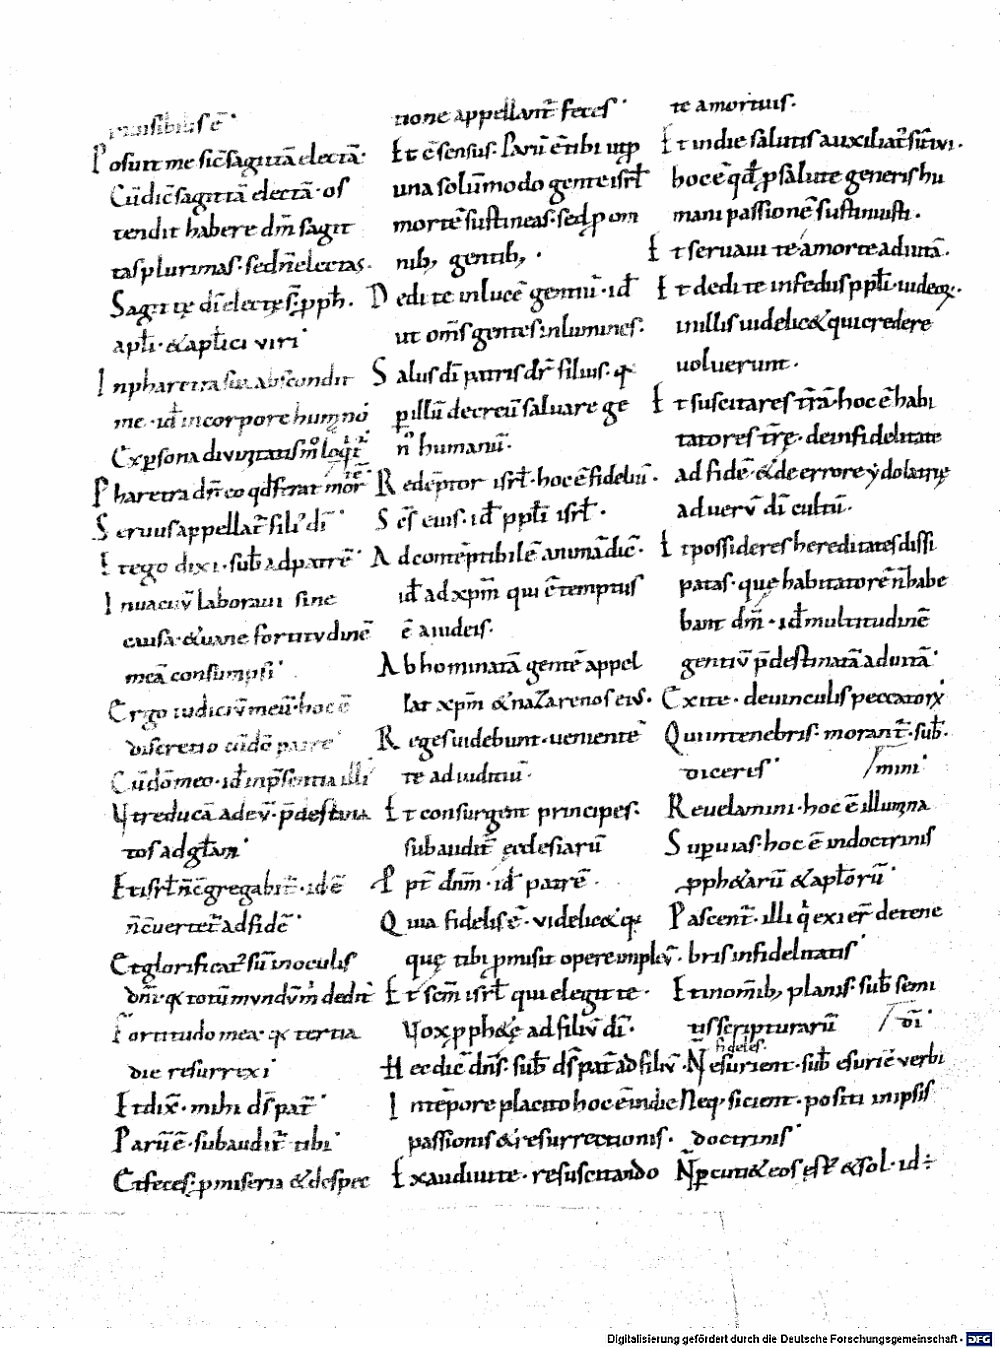 inuisibilis ē·
Posuit me sic̄ sagittā electā·
Cū dic̄ sagittā electā· os
tendit habere dm̄ sagit
tas plurimas· sed n̄ electas·
Sagittę dī electę sꝭ pph̄·
apl̄i· & apl̄ici viri·
In pharetra sua abscondit
me· id̄ in corpore humano
Ex persona diuinitatis
Pharetra
Seruus appellat̄ fili᾿ dī·
Et ego dixi· sub̄ ad patrē·
In uacuū laboraui sine
causa· & uane fortitudinē
meā consumpsi·
Ergo iudiciū meū· hoc ē
discretio cū dō patre·
Cū dō meo· id̄ in p̄sentia illi᾿
Vt reducā ad eū· p̄destina
tos ad gl̄am·
Et isrl̄ n̄ c̄gregabit̄· id ē
n̄ c̄uertet̄ ad fidē·
Et glorificat᾿ sū in oculis
dn̄i· q totū mundū m̄ dedit·
Fortitudo mea· q tertia
die resurrexi·
Et dix̄· mihi ds̄ pat̄·
Parū ē· subaudit̄ tibi·
Et feces· ꝓ miseria & despec
tione appellant̄ feces·
Et ē sensus· Parū ē tibi ut ꝓ
una solūmodo gente isrl̄
mortē sustineas· sed ꝓ om
nib; gentib;·
Dedi te in lucē gentiū· id̄
ut om̄s gentes inlumines·
Salus dī patris dr̄ filius· q
ꝑ illū decreuī saluare ge
n᾿ humanū·
Redēptor isrl̄· hoc ē fideliū·
Sc̄s eius· id̄ ppl̄i isrl̄·
Ad contēptibilē animā dic̄·
id̄ ad xpm̄ qui ē temptus
ē a iudeis·
Abhominatā gentē appel
lat xpm̄ & nazarenos ei᾿·
Reges uidebunt· uenientē
te ad iuditiū·
Et consurgent principes·
subaudit̄ ęcclesiarū
Ppt̄ dnm̄· id̄ patrē·
Quia fidelis ē· videlic& q
quę tibi ꝓmisit opere impleu᾿·
Et sc̄m isrl̄ qui elegit te·
Vox ꝓph&ę ad filiū dī·
Hec dic̄ dn̄s· sub̄ ds̄ pat̄ ad filiū·
In tēpore placito hoc ē in die
passionis & resurrectionis·
Exaudiui te· resuscitando
te a mortuis·
Et in die salutis auxiliat᾿ sū tivi·
hoc ē qd̄ ꝓ salute generis hu
mani passionē sustinuisti·
Et seruaui te· a morte aduūtā·
Et dedi te in fedus ppl̄i· iudeoꝝ·
in illis uidelic& qui credere
uoluerunt·
Et suscitares tr̄rā· hoc ē habi
tatores tr̄rę· de infidelitate
ad fidē· & de errore ydolatrię
ad uerū dī cultū·
Et possideres hereditates dissi
patas· quę habitatorē n̄ habe
bant dm̄· id̄ multitudinē
gentiū p̄destinatā ad uitā·
Exite· de uinculis peccatorꝝ
Qui in tenebris· morant̄· sub̄·
diceris· mini·
Reuelamini· hoc ē illumina
Super uias· hoc ē in doctrinis
ꝓph&arū & apl̄orū·
Pascent̄· illi q̇ exier̄ de tene
bris infidelitatis·
Et in om̄ib; planis· sub̄ semi
tis scripturarū dī·
fideles·
N̄ esurient· sub̄ esuriē verbi
Neq· sicient· positi in ipsis
doctrinis·
N̄ percuti& eos ęst᾿ & sol· id÷
Digitalisierung gefördert durch die Deutsche Forschungsgemeinschaft - DFG